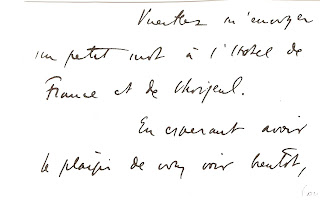 Veuillez m'envoyer
un petit mot à l'Hotel de
France et de Choiseul.
En espérant avoir
le plaisir de vous voir bientôt,